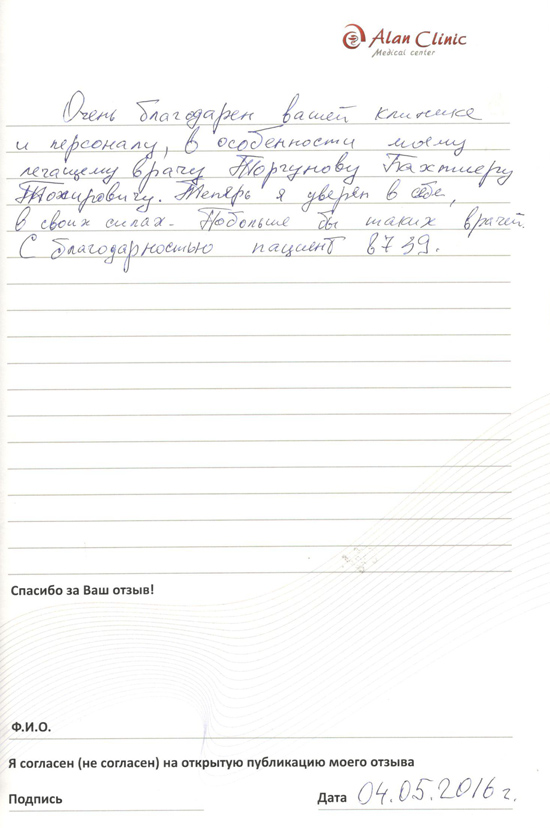 Alan Clinic
Medical center
Очень благодарен вашей клинике
и персоналу, в особенности моему
лечащему врачу Торгунову Бахтиеру
Тохировичу. Теперь я уверен в себе,
в своих силах. Побольше бы таких врачей.
С благодарностью пациент 8739.
Спасибо за Ваш отзыв!
Ф.И.О.
Я согласен (не согласен) на открытую публикацию моего отзыва
Подпись
Дата 04.05.2016 г.